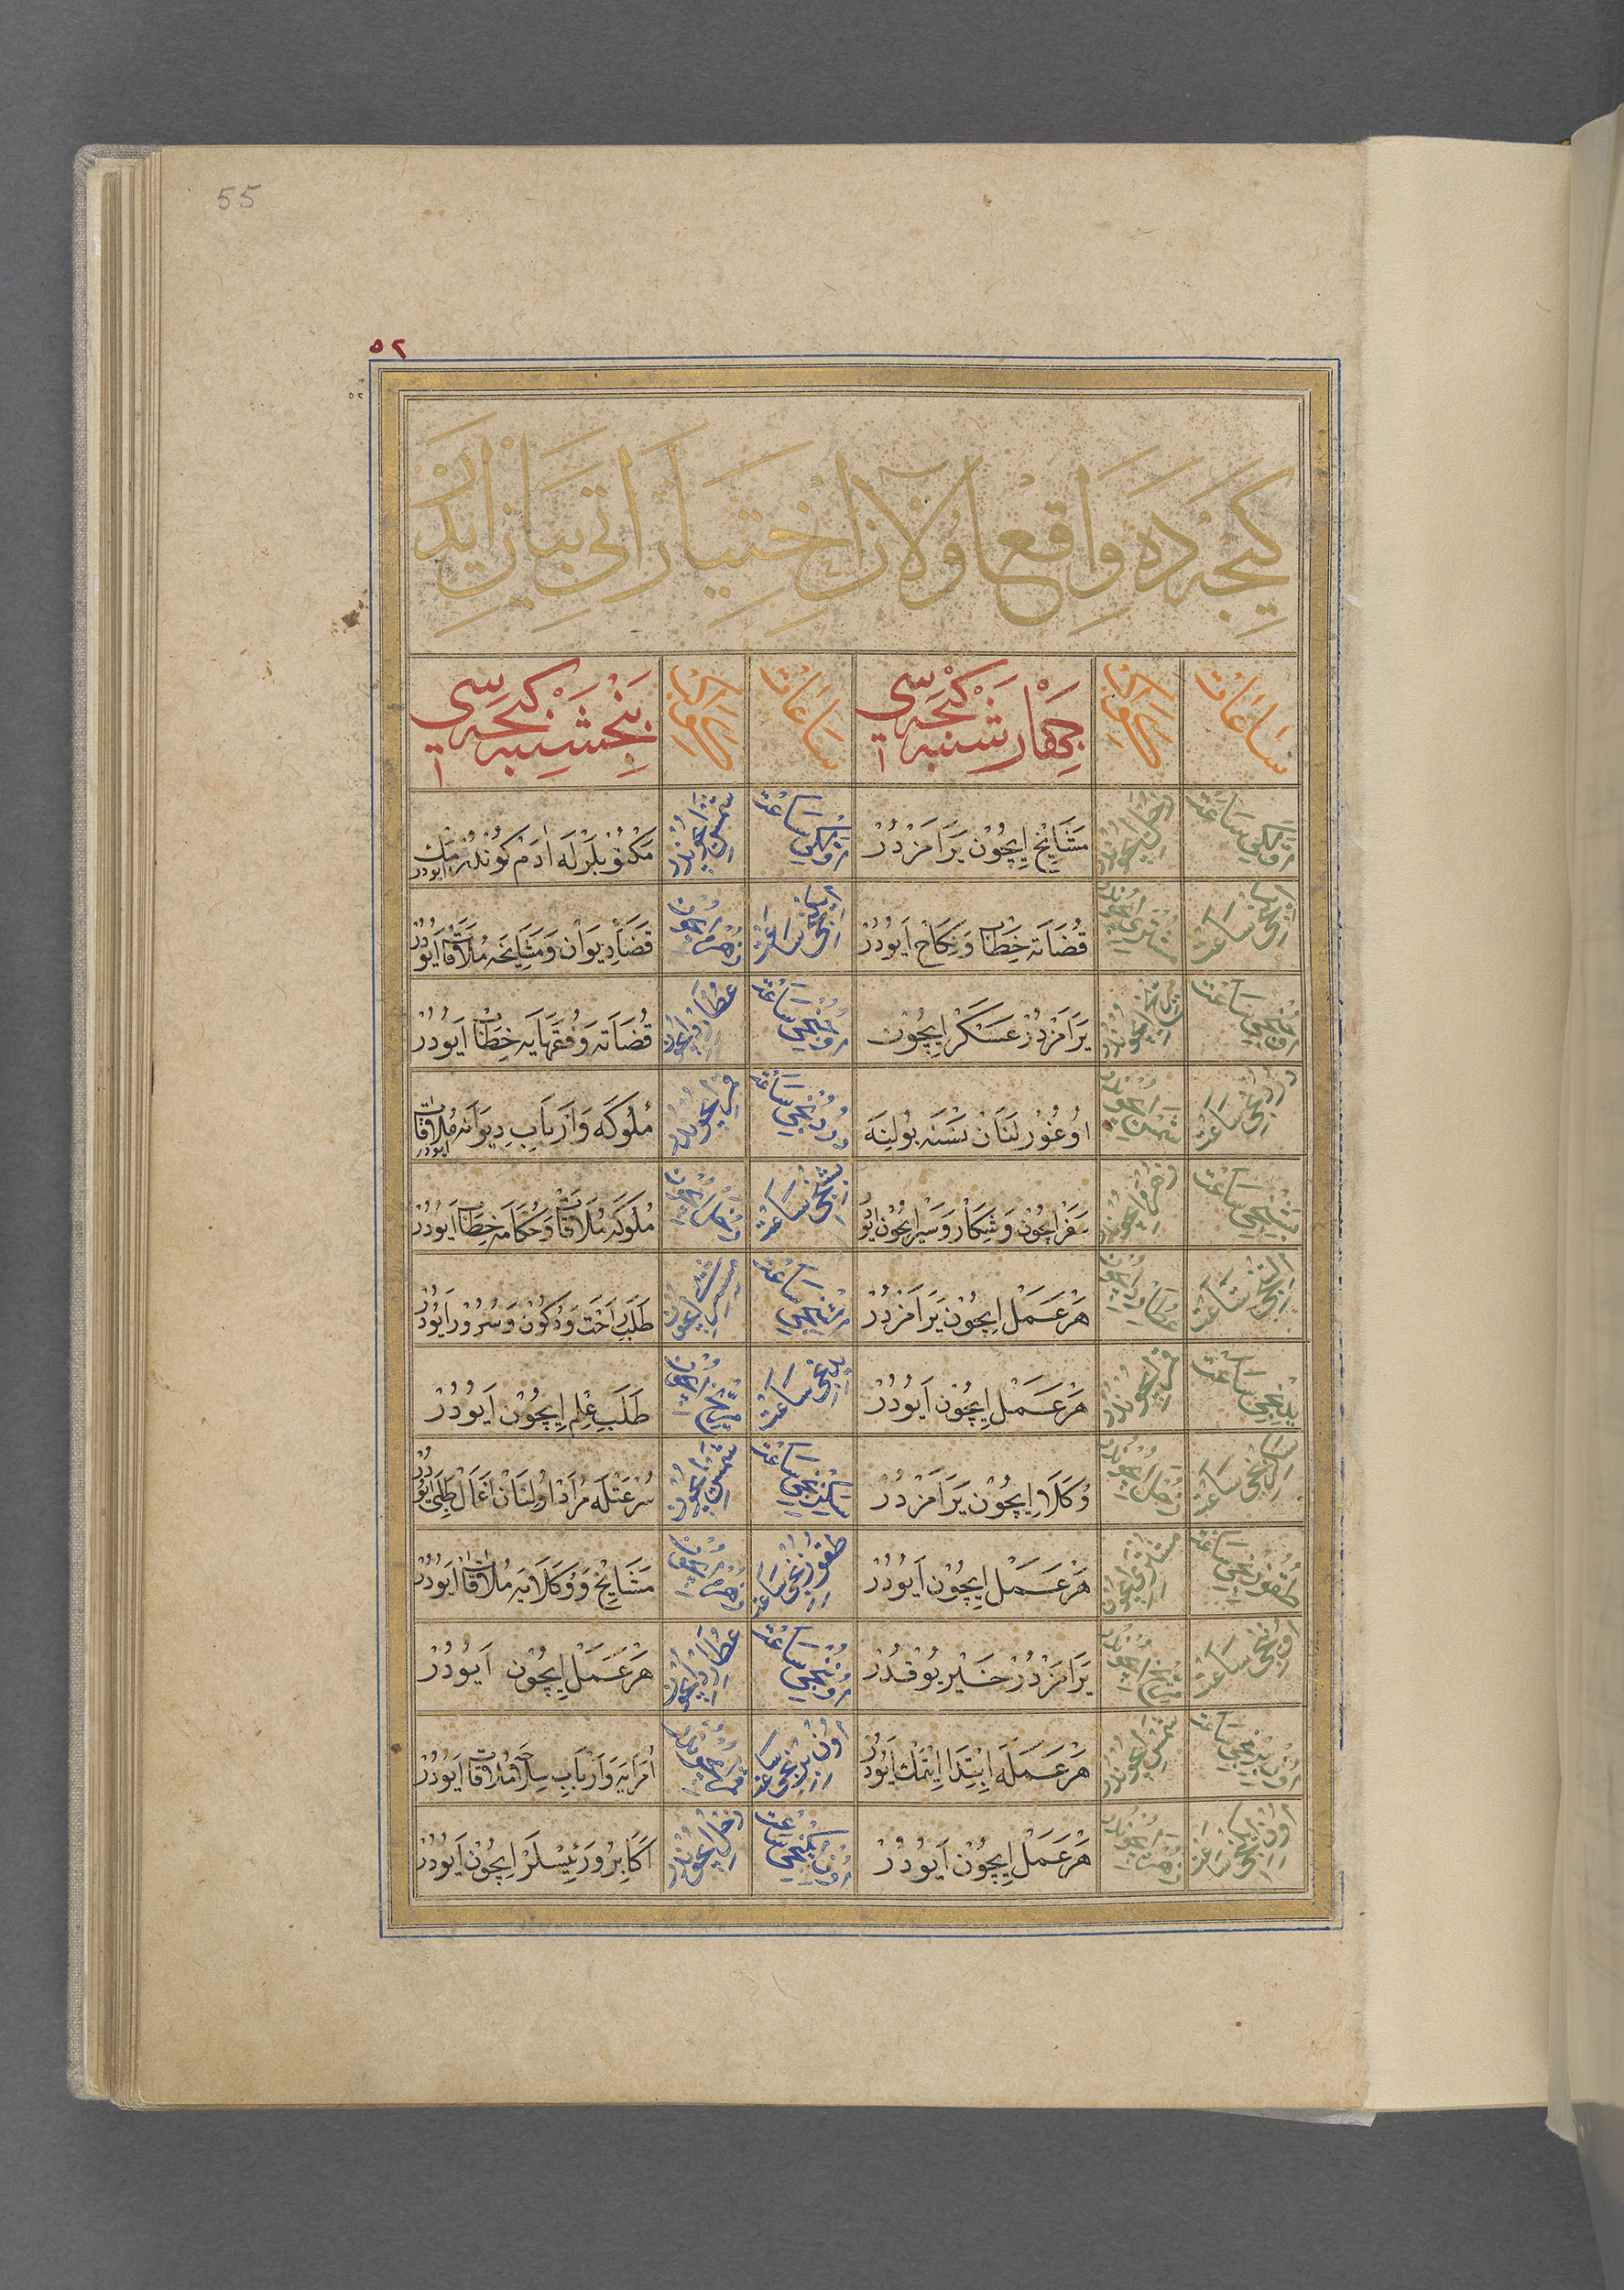 55
٥٢
٥٢
كيجه ده واقع اولان اختياراتى بيان ايدر
ساعات
چهارشنبه كيجه سى
ساعات
پنجشنبه كيجه سى
اولكى ساعت
زحل ايچوندر
مشايخ ايچون يرامزدر
اولكى ساعت
شمس ايچوندر
مكتوبلرله ادم كوندرمك ايودر
ايكنجى ساعت
مشترى ايچوندر
قضاته خطاب و نكاح ايودر
ايكنجى ساعت
زهره ايچوندر
قضا ديوان و مشايخه ملاقات ايودر
اوچنجى ساعت
مريخ ايچوندر
يرامزدر عسكر ايچون
اوچنجى ساعت
عطارد ايچون
قضاته و فقهايه خطاب ايودر
دردنجى ساعت
شمس ايچوندر
اوغورلنان نسنه بولينه
دردنجى ساعت
قمر ايچوندر
ملوكه و ارباب ديوانه ملاقات ايودر
بشنجى ساعت
زهره ايچوندر
سفر ايچون و شكار و سير ايچون ايو
بشنجى ساعت
زحل ايچوندر
ملوكه ملاقات و حكامه خطاب ايودر
التنجى ساعت
عطارد ايچون
هر عمل ايچون يرامزدر
التنجى ساعت
مشترى ايچون
طلب راحت و دكون و سرور ايودر
يدنجى ساعت
قمر ايچوندر
هر عمل ايچون ايودر
يدنجى ساعت
مريخ ايچوندر
طلب علم ايچون ايودر
سكزنجى ساعت
زحل ايچوندر
وكلا ايچون يرامزدر
سكزنجى ساعت
شمس ايچون
سرعتله مراد اولنان اعمال طلبى ايودر
طقوزنجى ساعت
مشترى ايچون
هر عمل ايچون ايودر
طقوزنجى ساعت
زهره ايچوندر
مشايخ و وكلايه ملاقات ايودر
اوننجى ساعت
مريخ ايچوندر
يرامزدر خير يوقدر
اوننجى ساعت
عطارد ايچون
هر عمل ايچون ايودر
اون برنجى ساعت
شمس ايچوندر
هر عمله ابتدا ايتمك ايودر
اون برنجى ساعت
قمر ايچوندر
امرايه و ارباب سلاحه ملاقات ايودر
اون ايكنجى ساعت
زهره ايچوندر
هر عمل ايچون ايودر
اون ايكنجى ساعت
زحل ايچوندر
اكابر و رئيسلر ايچون ايودر